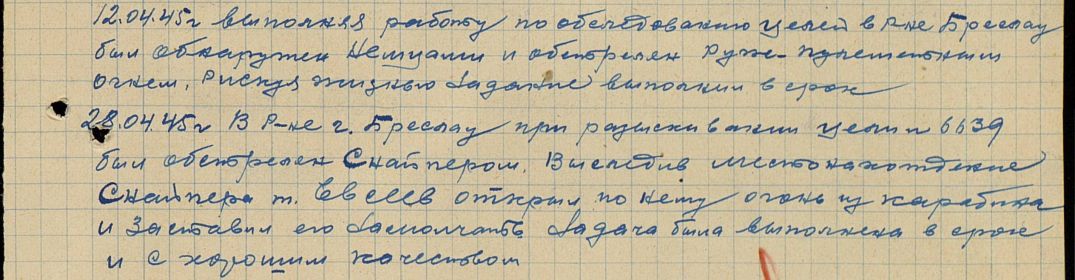 12.04.45г выполняя работу по обследованию целей в р-не Бреслау
был обнаружен немцами и обстрелян руже-пулеметным
огнем, рискуя жизнью задание выполнил в срок
28.04.45г В р-не г. Бреслау при разыскивании цели 6639
был обстрелян Снайпером. Выследив местонахождение
Снайпера т. Евсеев открыл по нему огонь из карабина
и Заставил его Замолчать Задача была выполнена в срок
и с хорошим качеством